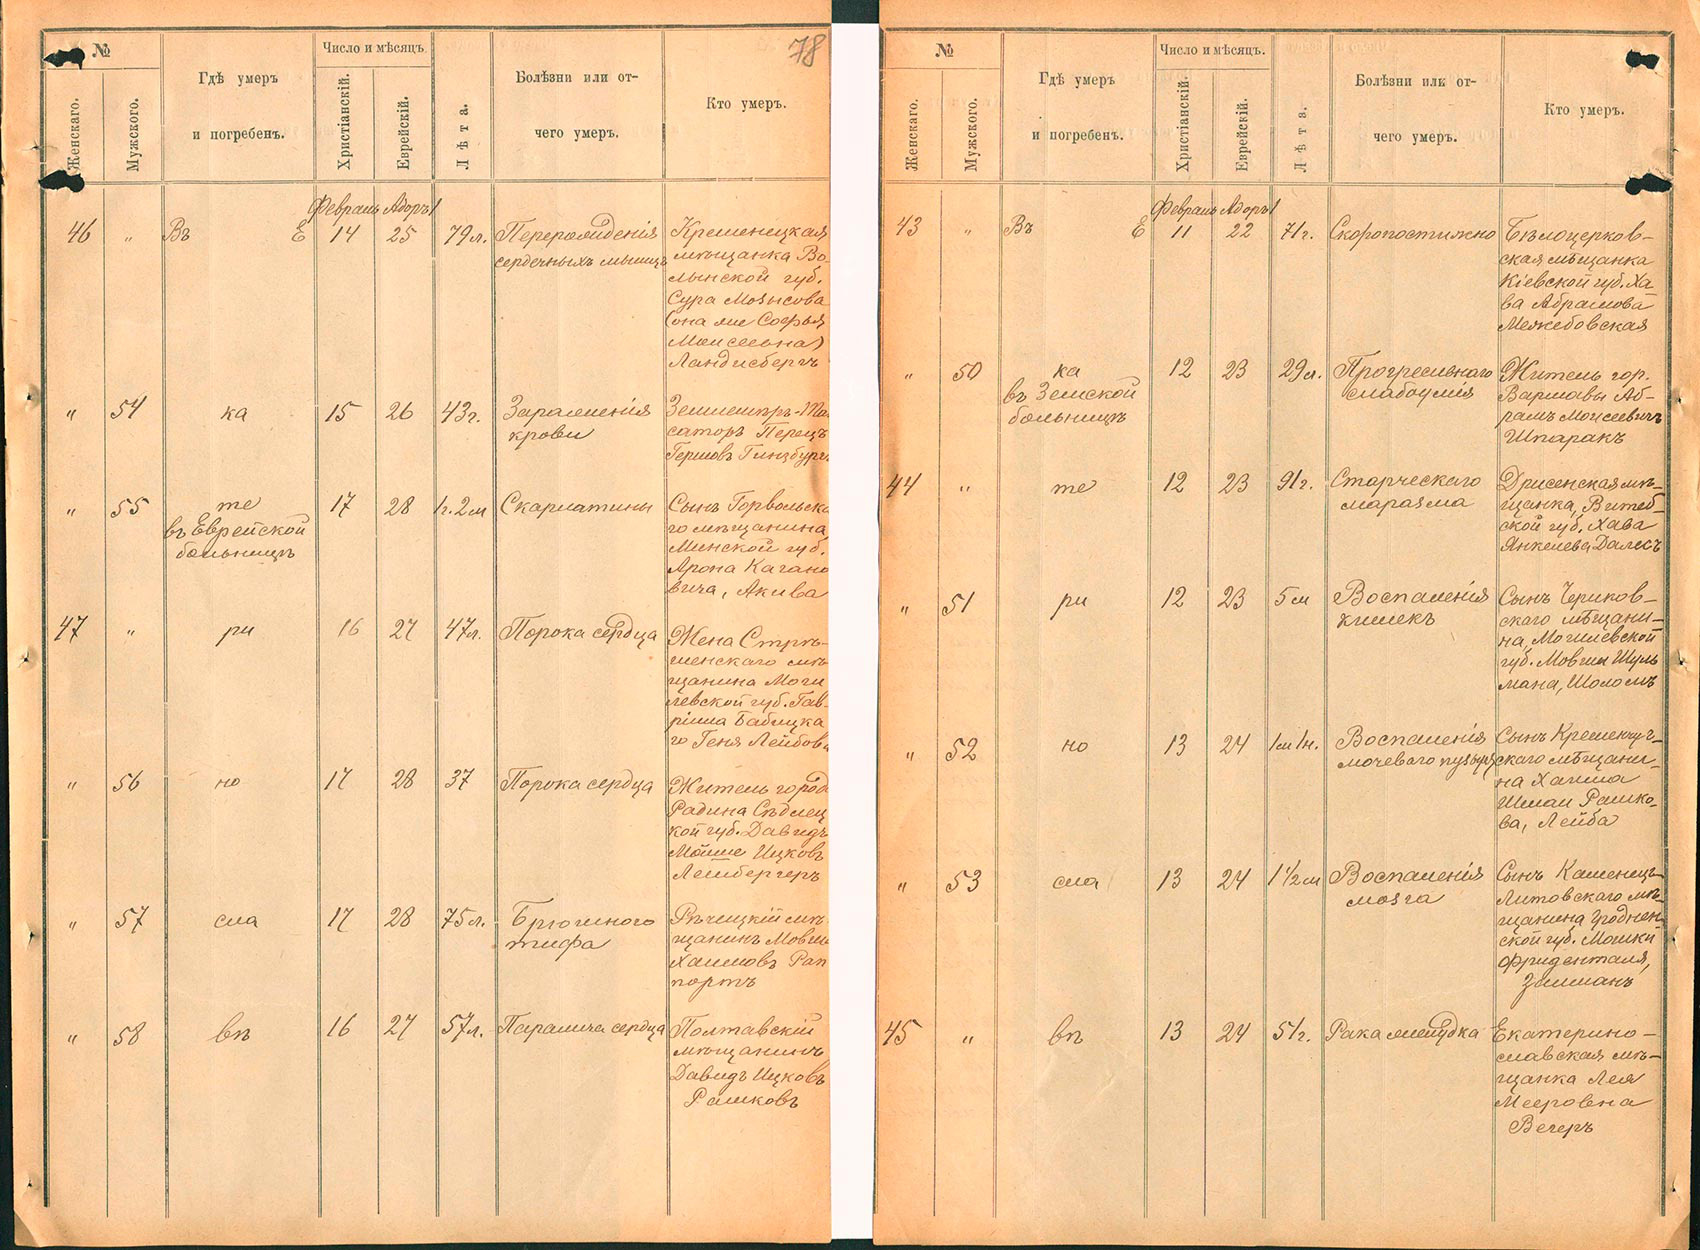 78
№
Число и мѣсяцъ.
Женскаго.
Мужского.
Гдѣ умеръ
и погребенъ.
Христіанскій.
Еврейскій.
Лѣта.
Болѣзни или от-
чего умеръ.
Кто умеръ.
Февраль Адоръ 1
46 " Въ Е 14 25 79 л. Перерожденія
сердечныхъ мышцъ
Кременецкая
мѣщанка Во-
лынской губ.
Сура Мовысова
(она же Софья
Моисеевна)
Ландисбергъ
" 54 ка 15 26 43 г. Зараженія
крови
Землемѣръ-Та
саторъ Перецъ
Гершовъ Гинзбургъ
" 55 те 17 28 1 г. 2 м Скарлатины
въ Еврейской
больницѣ
Сынъ Горвольска
го мѣщанина
Минской губ.
Арона Кагано
вича, Акива
47 " ри 16 27 47 л. Порока сердца
Жена Стрѣ-
шенскаго мѣ
щанина Моги
левской губ. Гав-
ріила Бабицка
го Геня Лейбова
" 56 но 17 28 37 Порока сердца
Житель города
Радина Сѣдлец
кой губ. Давидъ
Мойше Ицковъ
Лембергеръ
" 57 сла 17 28 75 л. Брюшного
тифа
Рѣчицкій мѣ-
щанинъ Мовша
Хаимовъ Рап
портъ
" 58 вѣ 16 27 57 л. Паралича сердца
Полтавскій
мѣщанинъ
Давидъ Ицковъ
Рашковъ
№
Число и мѣсяцъ.
Женскаго.
Мужского.
Гдѣ умеръ
и погребенъ.
Христіанскій.
Еврейскій.
Лѣта.
Болѣзни или от-
чего умеръ.
Кто умеръ.
Февраль Адоръ 1
43 " Въ Е 11 22 71 г. Скоропостижно
Бѣлоцерков-
ская мѣщанка
Кіевской губ. Ха
ва Абрамова
Межибовская
" 50 ка 12 23 29 л. Прогресивнаго
въ Земской слабоумія
больницѣ
Житель гор.
Варшавы Аб-
рамъ Моисеевичъ
Шпаракъ
44 " те 12 23 91 г. Старческаго
маразма
Дрисенская мѣ-
щанка, Витеб-
ской губ. Хава
Янкелева Далесъ
" 51 ри 12 23 5 м Воспаленія
кишекъ
Сынъ Чериков-
скаго мѣщани-
на, Могилевской
губ. Мовши Шуль
мана, Шоломъ
" 52 но 13 24 1 м 1 н. Воспаленія
мочевого пузыря
Сынъ Кременчуг-
скаго мѣщани-
на Хаима
Шмаи Рашко-
ва, Лейба
" 53 сла 13 24 1 1/2 м Воспаленія
мозга
Сынъ Каменецъ-
Литовскаго мѣ-
щанина Гроднен-
ской губ. Мошки
Фриденталя,
Зелманъ
45 " вѣ 13 24 51 г. Рака желудка
Екатерино-
славская мѣ-
щанка Лея
Мееровна
Вечеръ